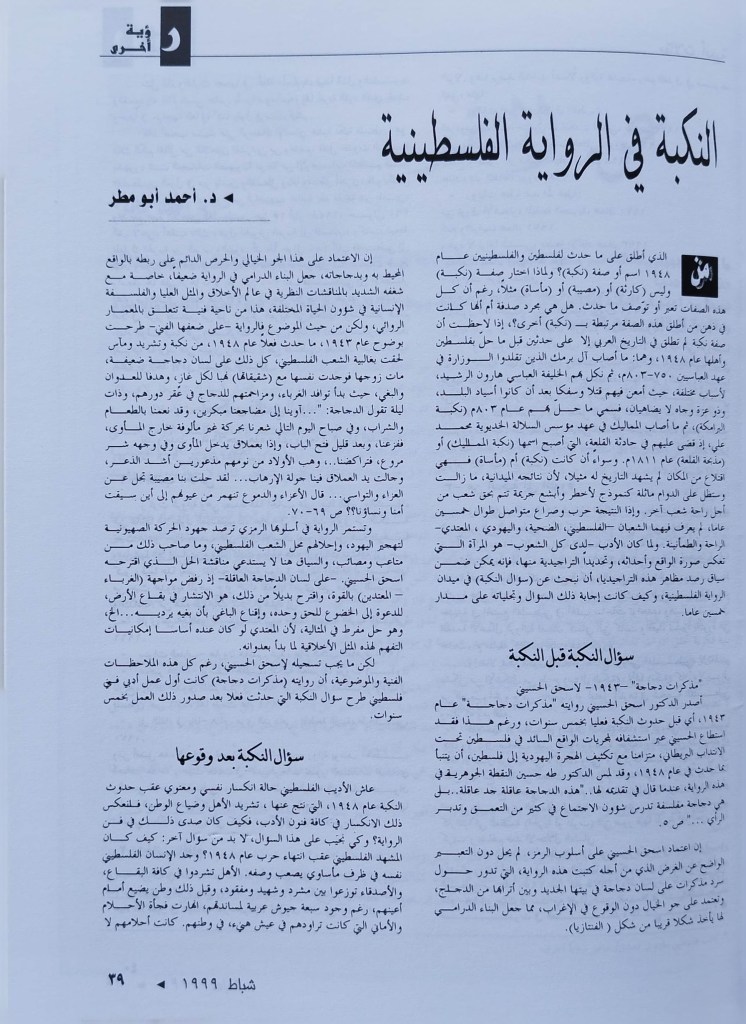 رؤية
أخرى
النكبة في الرواية الفلسطينية
◄ د. أحمد أبو مطر
من الذي أطلق على ما حدث لفلسطين والفلسطينيين عـام
١٩٤٨ اسم أو صفة (نكبة)؟ ولماذا اختار صفة (نكبة)
وليس (كارثة) أو (مصيبة) أو (مأساة) مثلاً، رغم أن كل
هذه الصفات تعبر أو توّصف ما حدث. هل هي مجرد صدفة أم أنها كـانت
في ذهن من أطلق هذه الصفة مرتبطة بـ (نكبة) أخرى؟، إذا لاحظت أن
صفة نكبة لم تطلق في التاريخ العربي إلا على حدثين قبل ما حلّ بفلسطين
وأهلها عام ١٩٤٨، وهما: ما أصاب آل برمك الذين تقلدوا الـوزارة في
عهد العباسيين ٧٥٠-٨٠٣م، ثم نكل بهم الخليفة العباسي هارون الرشيد،
لأسباب مختلفة، حيث أمعن فيهم قتلا وسفكا بعد أن كانوا أسياد البلـد،
وذو عزة وجاه لا يضاهيان، فسمي ما حـل بهـم عـام ٨٠٣م (نكبـة
البرامكة)، ثم ما أصاب المماليك في عهد مؤسس السلالة الخديوية محمـد
علي، إذ قضى عليهم في حادثة القلعة، التي أصبح اسمها (نكبة المماليك) أو
(مذبحة القلعة) عام ١٨١١م. وسواء أن كانت (نكبة) أم (مأساة) فـهي
اقتلاع من المكان لم يشهد التاريخ له مثيلا، لأن نتائجه الميدانية، ما زالـت
وستظل على الدوام ماثلة كنموذج لأخطر وأبشع جريمة تتم بحق شعب من
أجل راحة شعب آخر. وإذا النتيجة حرب وصراع متواصل طوال خمسـين
عاما، لم يعرف فيهما الشعبان –الفلسطيني، الضحية، واليهودي، المعتدي-
الراحة والطمأنينة. ولما كان الأدب –لدى كل الشعوب- هو المرآة التي
تعكس صورة الواقع وأحداثه، وتحديداً التراجيدية منها، فإنه يمكن ضمـن
سياق رصد مظاهر هذه التراجيديا، أن نبحث عن (سؤال النكبة) في ميدان
الرواية الفلسطينية، وكيف كانت إجابة ذلك السؤال وتجلياته على مـدار
خمسين عاما.
سؤال النكبة قبل النكبة
"مذكرات دجاجة" –١٩٤٣- لاسحق الحسيني
أصدر الدكتور اسحق الحسيني روايته "مذكرات دجاجـة" عـام
١٩٤٣، أي قبل حدوث النكبة فعليا بخمس سنوات، ورغم هـذا فقـد
استطاع الحسيني عبر استشفافه لمجريات الواقع السائد في فلسطين تحـت
الانتداب البريطاني، متزامنا مع تكثيف الهجرة اليهودية إلى فلسطين، أن يتنبأ
بما حدث في عام ١٩٤٨، وقد لمس الدكتور طه حسين النقطة الجوهريـة في
هذه الرواية، عندما قال في تقديمه لها.."هذه الدجاجة عاقلة جد عاقلة..بـل
هي دجاجة مفلسفة تدرس شؤون الاجتماع في كثير من التعمـق وتدبـر
الرأي ..." ص ٥.
إن اعتماد اسحق الحسيني على أسلوب الرمز، لم يحل دون التعبـير
الواضح عن الغرض الذي من أجله كتبت هذه الرواية، التي تدور حـول
سرد مذكرات على لسان دجاجة في بيتها الجديد وبين أترابها من الدجـاج،
وتعتمد على جو الخيال دون الوقوع في الإغراب، مما جعل البناء الدرامي
لها يأخذ شكلا قريبا من شكل ( الفنتازيا).
إن الاعتماد على هذا الجو الخيالي والحرص الدائم على ربطه بالواقع
المحيط به وبدجاجاته، جعل البناء الدرامي في الرواية ضعيفاً، خاصـة مـع
شغفه الشديد بالمناقشات النظرية في عالم الأخلاق والمثل العليا والفلسـفة
الإنسانية في شؤون الحياة المختلفة، هذا من ناحية فنيـة تتعلـق بالمعمـار
الروائي، ولكن من حيث الموضوع فالرواية –على ضعفها الفني- طرحـت
بوضوح عام ١٩٤٣، ما حدث فعلاً عام ١٩٤٨، من نكبة وتشريد ومآس
لحقت بغالبية الشعب الفلسطيني، كل ذلك على لسان دجاجـة ضعيفـة،
مات زوجها فوجدت نفسها مع (شقيقاتها) نهبا لكل غاز، وهدفا للعـدوان
والبغي، حيث بدأ توافد الغرباء، ومزاحمتهم للدجاج في عُقر دورهم، وذات
ليلة تقول الدجاجة: "...آوينا إلى مضاجعنا مبكرين، وقد نعمنا بالطعـام
والشراب، وفي صباح اليوم التالي شعرنا بحركة غير مألوفة خارج المـأوى،
ففزعنا، وبعد قليل فتح الباب، وإذا بعملاق يدخل المأوى وفي وجهه شر
مروع، فتراكضنا.. وهب الأولاد من نومهم مذعوريـن أشـد الذعـر،
وجالت يد العملاق فينا جولة الإرهاب... لقد حلت بنا مصيبة تجل عـن
العزاء والتواسي... قال الأعزاء والدموع تنهمر من عيونهم إلى أين سيقت
أمنا ونساؤنا؟؟ ص ٦٩-٧٠.
وتستمر الرواية في أسلوبها الرمزي ترصد جهود الحركة الصهيونيـة
لتهجير اليهود، وإحلالهم محل الشعب الفلسطيني، وما صاحب ذلك مـن
متاعب ومصائب، والسياق هنا لا يستدعي مناقشة الحل الـذي اقترحـه
اسحق الحسيني. –على لسان الدجاجة العاقلة- إذ رفض مواجهة (الغربـاء
– المعتدين) بالقوة، واقترح بديلاً من ذلك، هو الانتشار في بقاع الأرض،
للدعوة إلى الخضوع للحق وحده، وإقناع الباغي بأن بغيه يرديـه...الخ،
وهو حل مفرط في المثالية، لأن المعتدي لو كان عنده أساسـا إمكانيـات
التفهم لهذه المثل الأخلاقية لما بدأ بعدوانه.
لكن ما يجب تسجيله لإسحق الحسيني، رغم كل هذه الملاحظـات
الفنية والموضوعية، أن روايته (مذكرات دجاجة) كانت أول عمل أدبي فـني
فلسطيني طرح سؤال النكبة التي حدثت فعلا بعد صدور ذلك العمل بخمس
سنوات.
سؤال النكبة بعد وقوعها
عاش الأديب الفلسطيني حالة انكسار نفسي ومعنوي عقب حدوث
النكبة عام ١٩٤٨، التي نتج عنها، تشريد الأهل وضياع الوطن، فـلنعكس
ذلك الانكسار في كافة فنون الأدب، فكيف كان صدى ذلـك في فـن
الرواية؟ وكي نجيب على هذا السؤال، لا بد من سؤال آخر: كيف كـان
المشهد الفلسطيني عقب انتهاء حرب عام ١٩٤٨؟ وجد الإنسان الفلسطيني
نفسه في ظرف مأساوي يصعب وصفه. الأهل تشردوا في كافة البقـاع،
والأصدقاء توزعوا بين مشرد وشهيد ومفقود، وقبل ذلك وطن يضيع أمـام
أعينهم، رغم وجود سبعة جيوش عربية لمساندتهم، انهارت فجأة الأحـلام
والأماني التي كانت تراودهم في عيش هنيء، في وطنهم. كانت أحلامهم لا
شباط ١٩٩٩ ◄ ٣٩